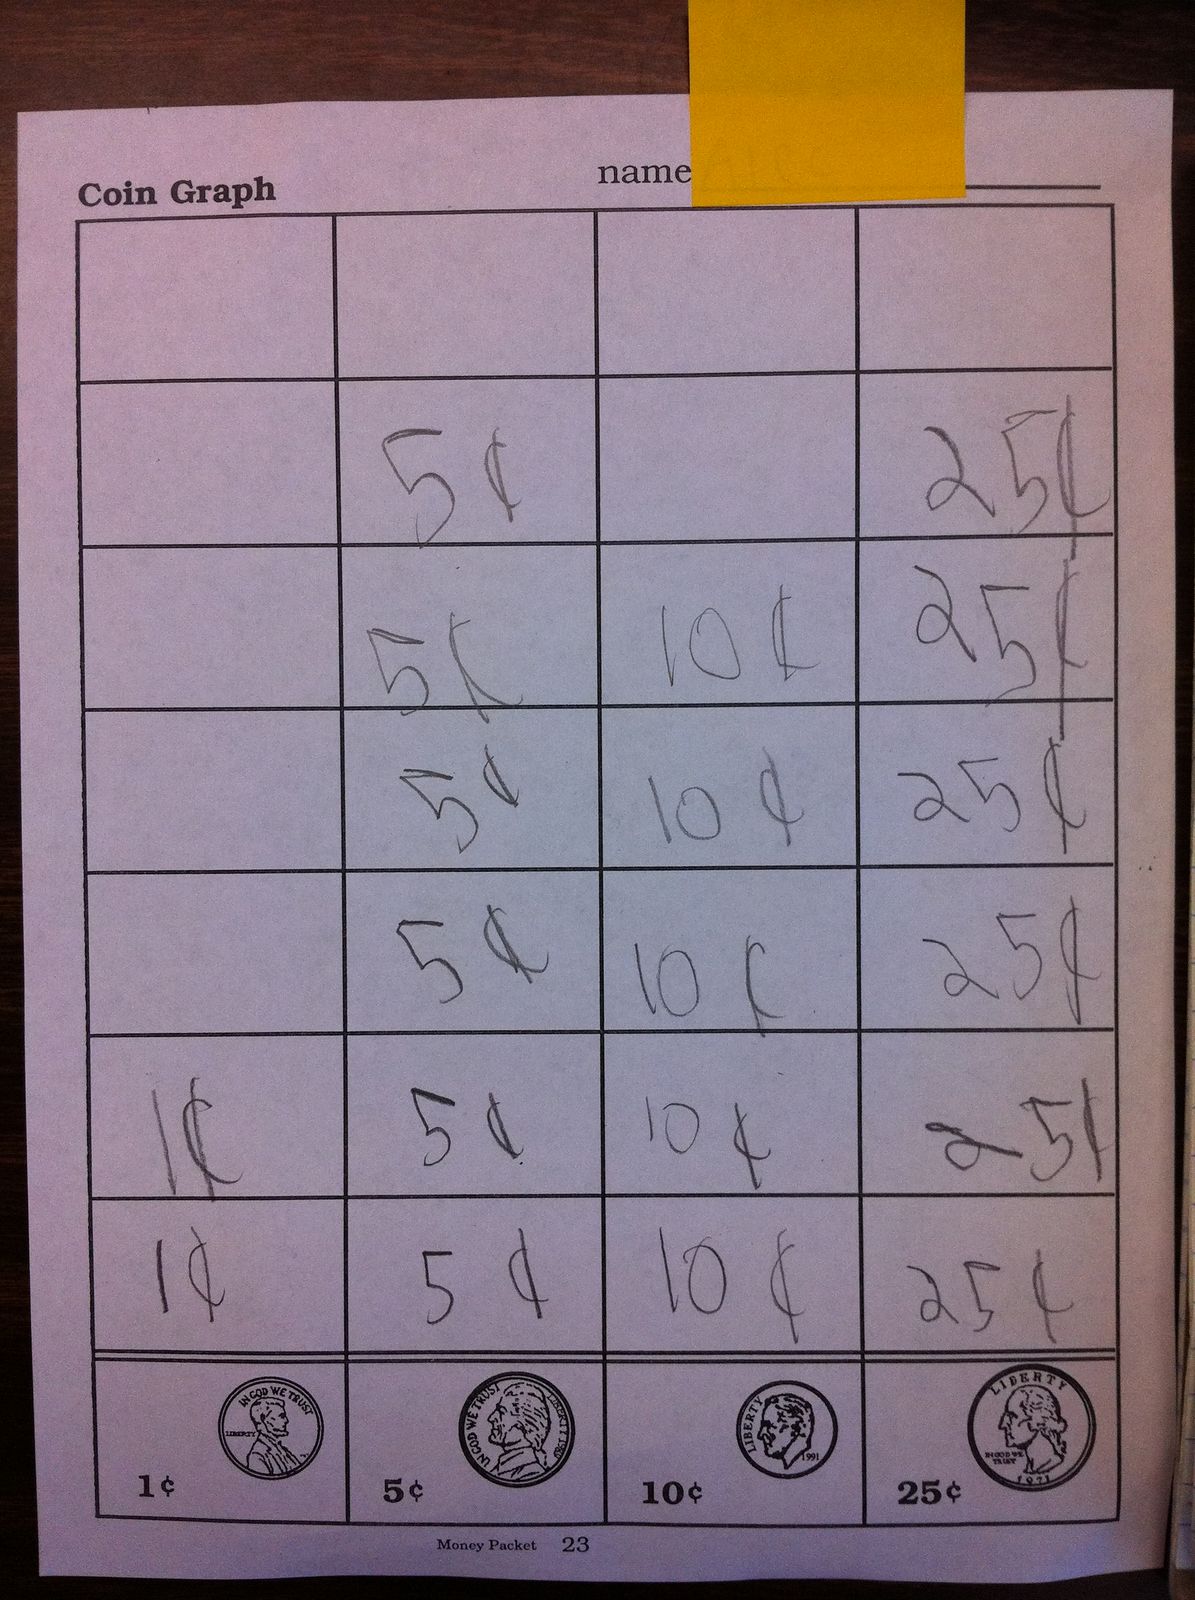 name
Coin Graph
5¢ 25¢
5¢ 10¢ 25¢
5¢ 10¢ 25¢
5¢ 10¢ 25¢
1¢ 5¢ 10¢ 25¢
1¢ 5¢ 10¢ 25¢
IN GOD WE TRUST
LIBERTY
IN GOD WE TRUST
LIBERTY
LIBERTY
1991
LIBERTY
IN GOD WE
TRUST
1971
1¢ 5¢ 10¢ 25¢
Money Packet 23